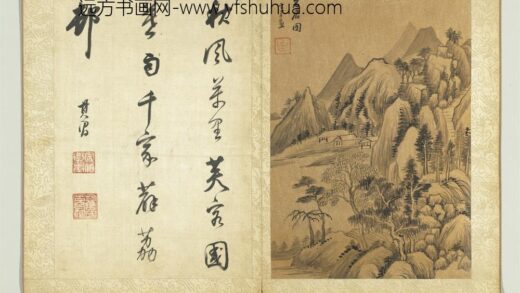 远方书画网-www.yfshuhua.com
秋風萬里芙蓉國
暮雨千家薜荔
邨
其昌